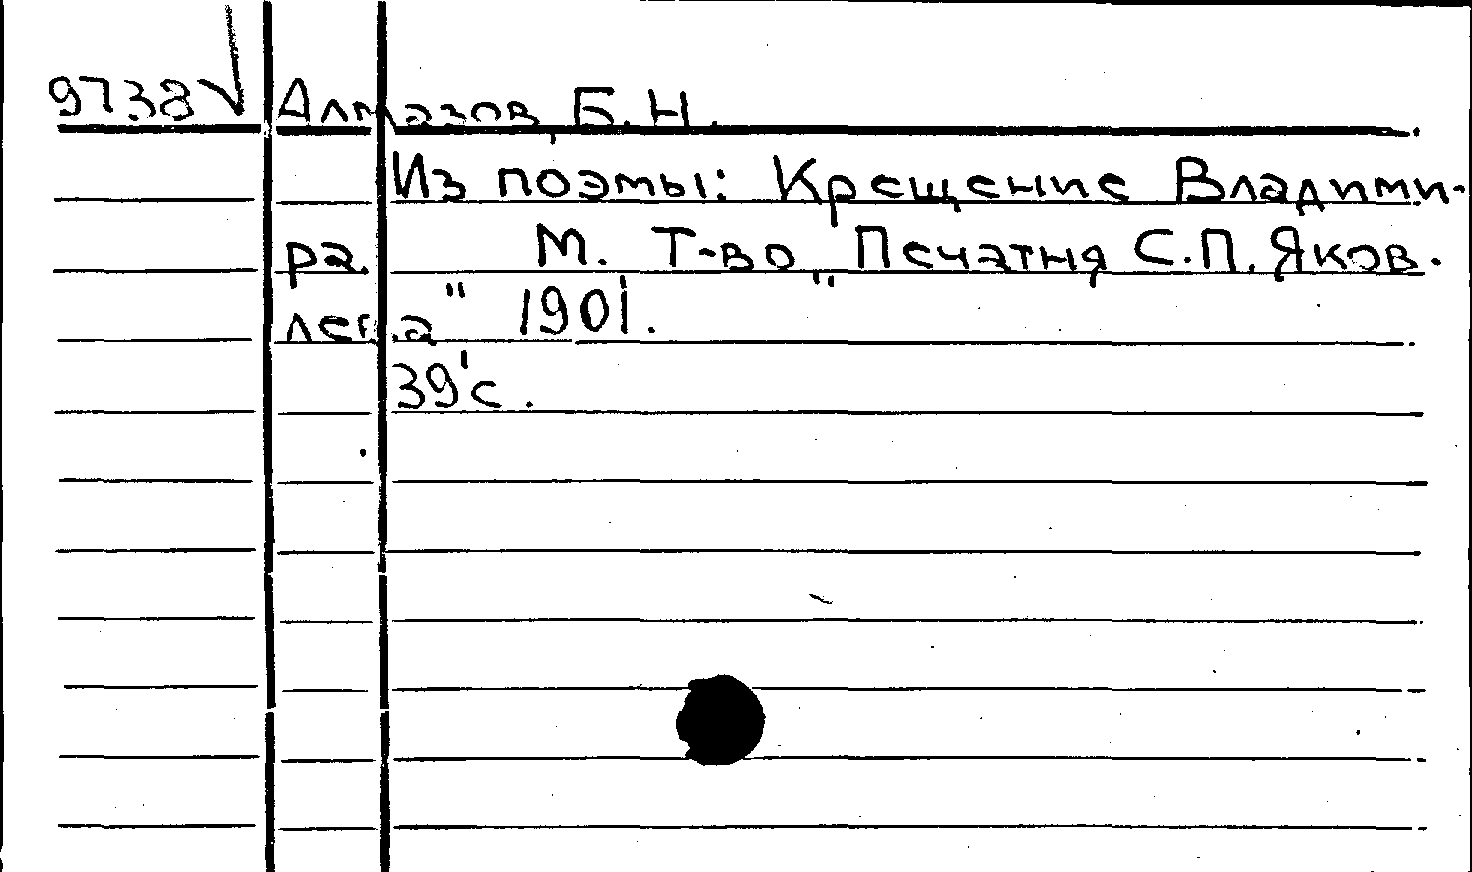 9738 √ Алмазов, Б. Н.
Из поэмы: Крещение Владими-
ра. М. Т-во "Печатня С. П. Яков-
лева" 1901.
39 с.